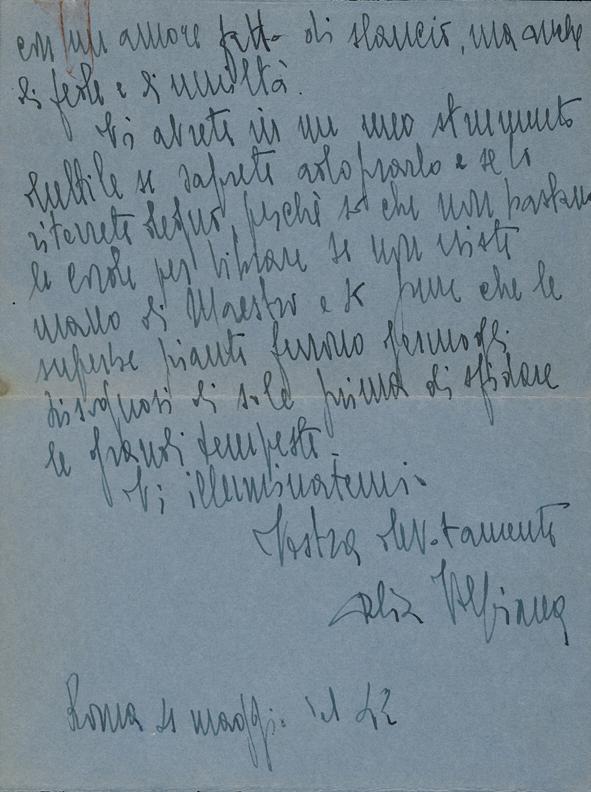 con un amore fatto di slancio, ma anche
di fede e di umiltà.
Vi avrete in me uno strumento
duttile se saprete adoprarlo e se lo
riterrete degno, perchè so che non bastano
le corde per vibrare se non esiste
mano di Maestro e so pure che le
superbe piante furono germogli
bisognosi di sole prima di sfidare
le grandi tempeste.
Vi illuminatemi.
Vostra devotamente
Roma 31 maggio del 42